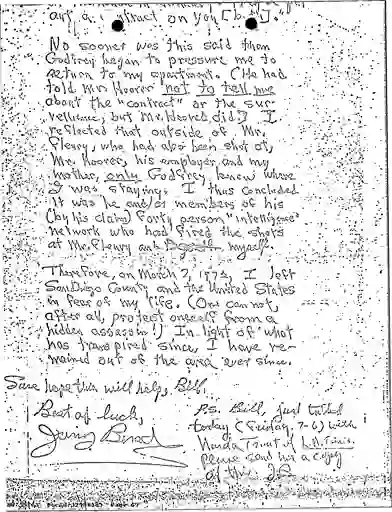 out a contract on you [b
No sooner was this said than
Godfrey began to pressure me to
return to my apartment. (He had
told Mr. Hoover not to tell me
about the "contract" or the sur-
veillance, but Mr. Hoover did.) I
reflected that outside of Mr.
Fleury, who had also been shot at,
Mr. Hoover, his employer and my
mother, only Godfrey knew where
I was staying. I thus concluded
it was he and/or members of his
(by his claim) forty person "intelligence"
network who had fired the shots
at Mr. Fleury and myself.
Therefore, on March 2, 1972, I left
San Diego County and the United States
in fear of my life. (One cannot,
after all, protect oneself from a
hidden assassin!) In light of what
has transpired since, I have re-
mained out of the area ever since.
Sure hope this will help, Bill.
Best of luck,
Jerry
P.S. Bill, just talked
today (Friday, 7-6) with
of L.A. Times.
Please send him a copy
of this.